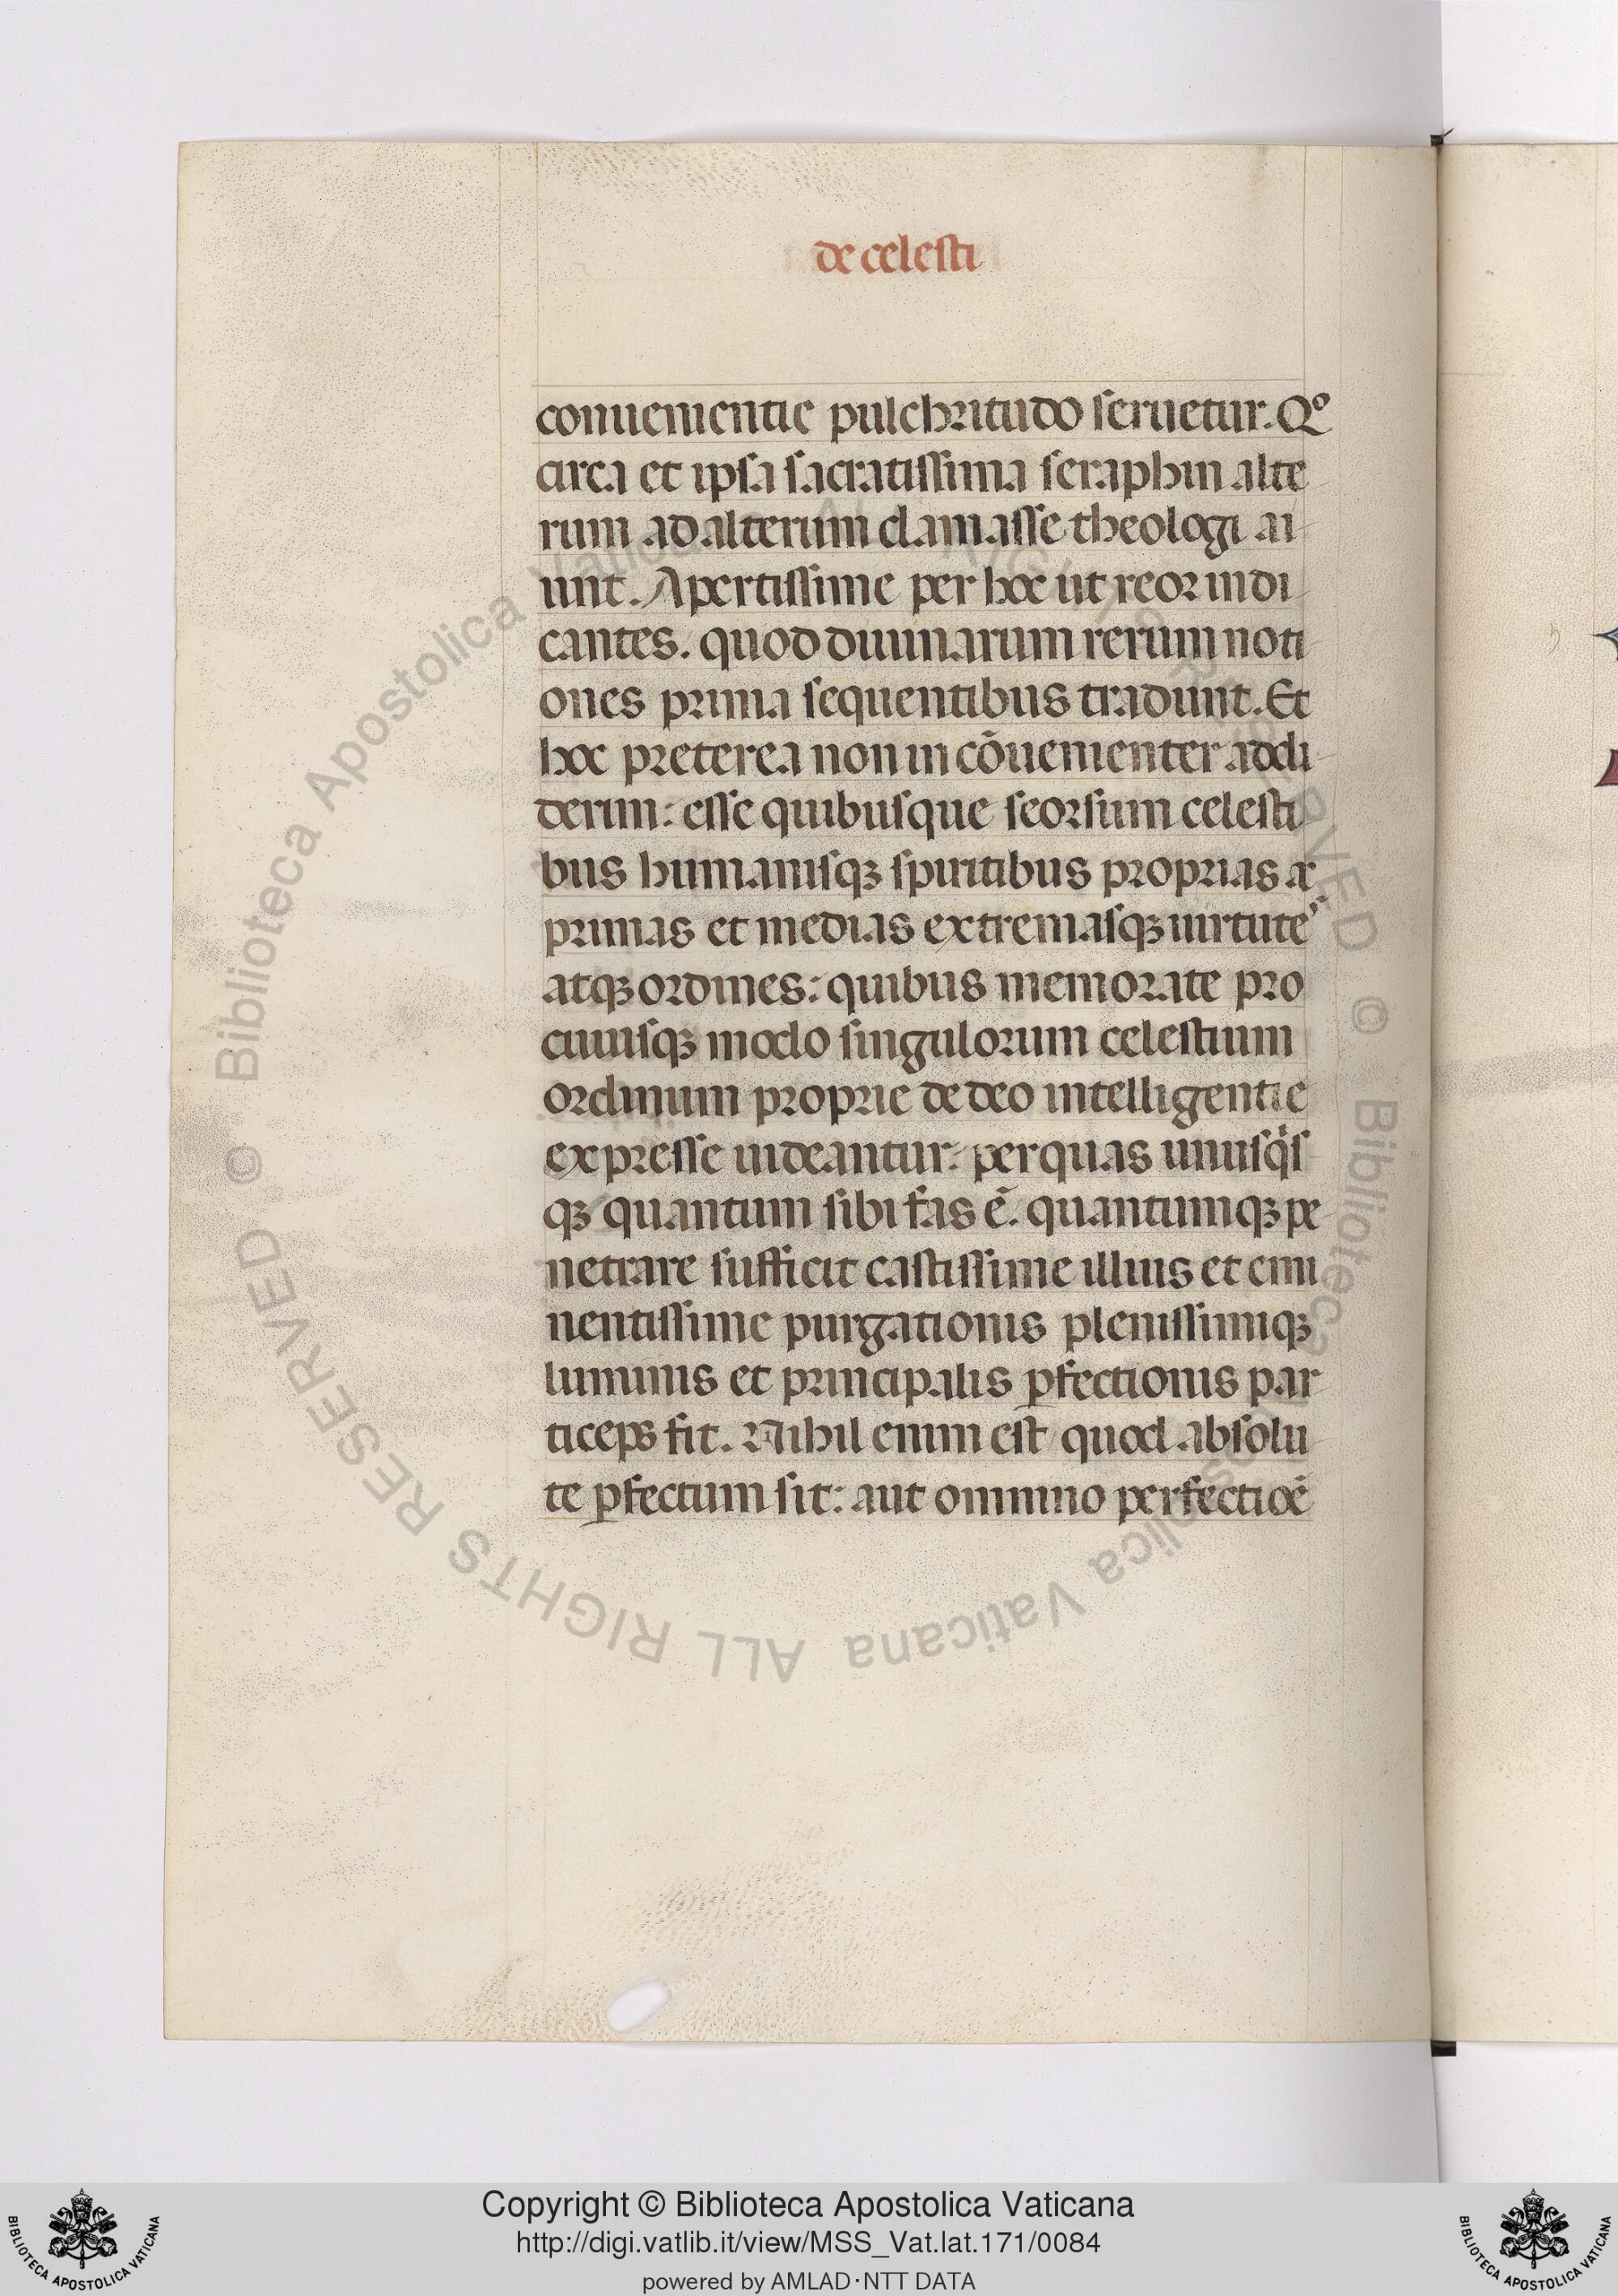 de celesti
conuenientie pulchritudo seruetur. Qº
circa et ipsa sacratissima seraphin alte
rum ad alterum clamasse theologi ai
unt. Apertissime per hoc ut reor indi
cantes. quod diuinarum rerum noti
ones prima sequentibus tradunt. Et
hoc preterea non in cōuenienter addi
derim: esse quibusque seorsum celesti
bus humanisqȝ spiritibus proprias ac
primas et medias extremasqȝ uirtutes
atqȝ ordines: quibus memorate pro
cuiusqȝ modo singulorum celestium
ordinum proprie de deo intelligentie
expresse uideantur. per quas unusqis
qȝ quantum sibi fas ē. quantumqȝ pe
netrare sufficit castissime illius et emi
nentissime purgationis plenissimiqȝ
luminis et principalis ꝑfectionis par
ticeps fit. Nihil enim est quod absolu
te ꝑfectum sit: aut omnino perfectiōe
© Biblioteca Apostolica Vaticana ALL RIGHTS RESERVED
Copyright © Biblioteca Apostolica Vaticana
http://digi.vatlib.it/view/MSS_Vat.lat.171/0084
powered by AMLAD·NTT DATA
BIBLIOTECA APOSTOLICA VATICANA
BIBLIOTECA APOSTOLICA VATICANA